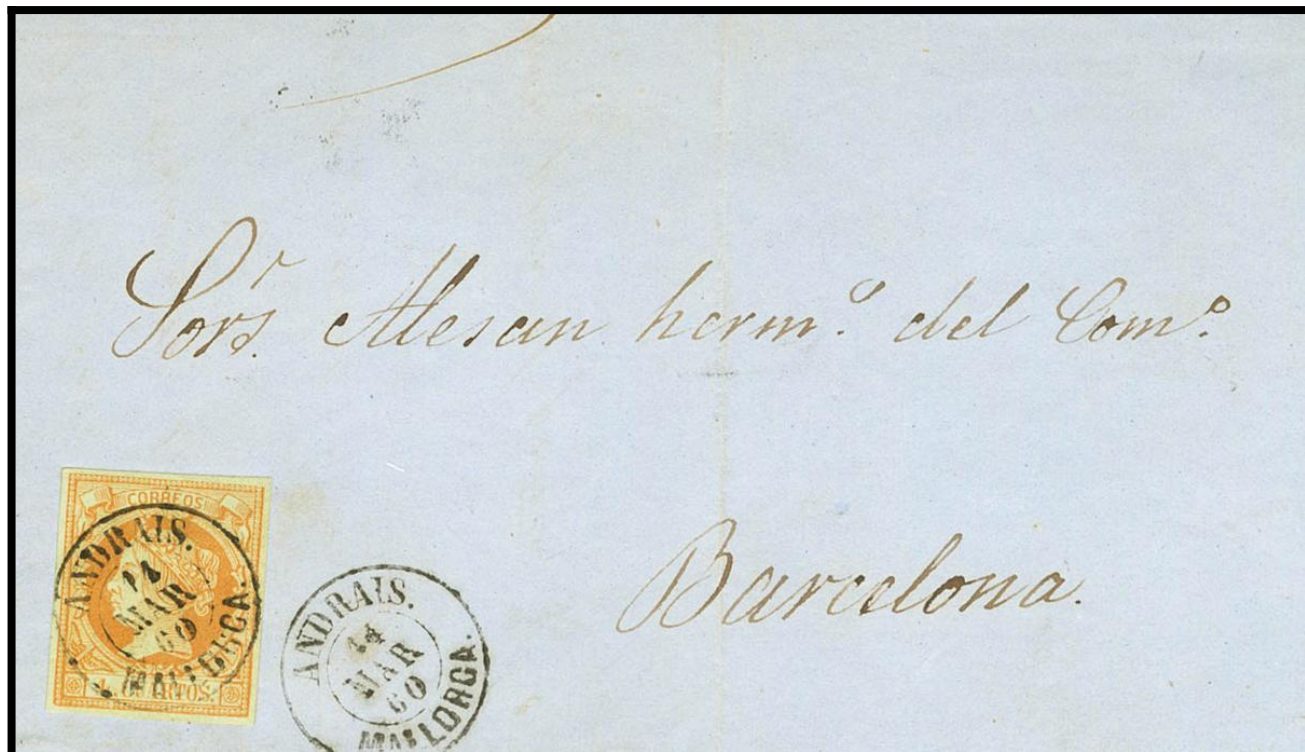 Sors. Alesan herm.º del Com.º
Barcelona.
CORREOS
ANDRAIS.
MAR
60
MALLORCA.
CUARTOS.
ANDRAIS.
14
MAR
60
MALLORCA.